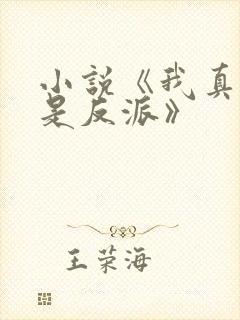 小説《我真
是反派》
王荣海